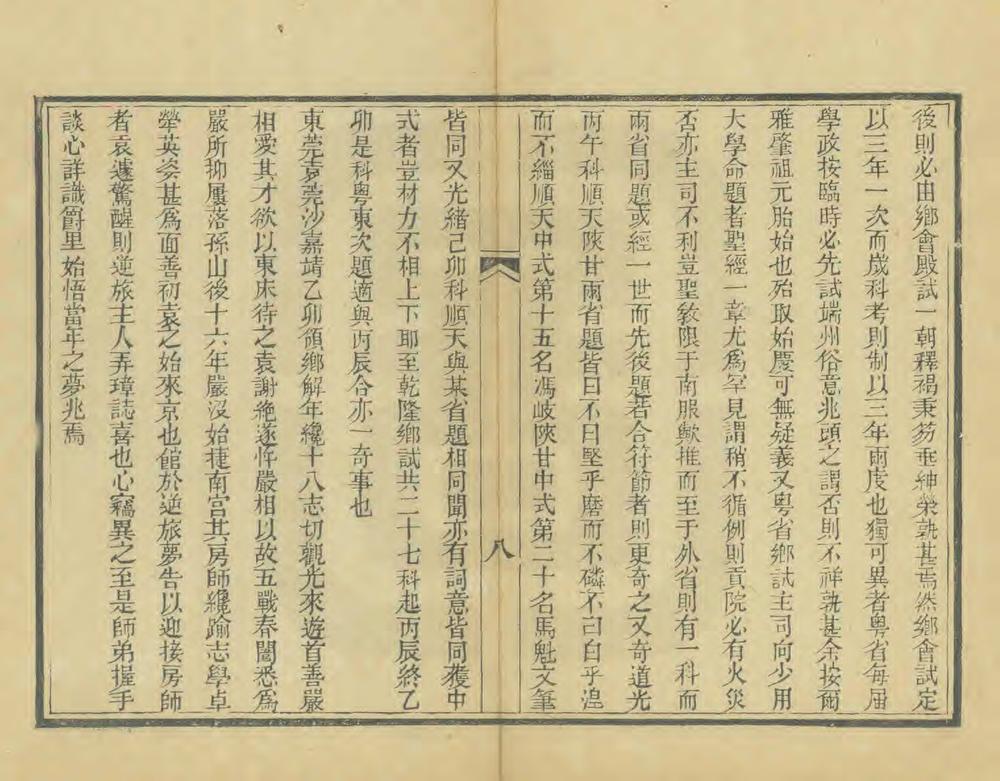 後則必由鄉會殿試一朝釋褐秉笏垂紳榮孰甚焉然鄉會試定
以三年一次而歲科考則制以三年兩度也獨可異者粵省每屆
學政按臨時必先試端州俗意兆頭之謂否則不祥孰甚余按爾
雅肇祖元胎始也殆取始慶可無疑義又粵省鄉試主司向少用
大學命題者聖經一章尤爲罕見謂稍不循例則貢院必有火災
否亦主司不利豈聖敎限于南服歟推而至于外省則有一科而
兩省同題或經一世而先後題若合符節者則更奇之又奇道光
丙午科順天陝甘兩省題皆曰不曰堅乎磨而不磷不曰白乎湼
而不緇順天中式第十五名馮岐陝甘中式第二十名馬魁文筆
皆同又光緒己卯科順天與某省題相同聞亦有詞意皆同獲中
式者豈材力不相上下耶至乾隆鄉試共二十七科起丙辰終乙
卯是科粵東次題適與丙辰合亦一奇事也
東莞袁莞沙嘉靖乙卯領鄉解年纔十八志切觀光來遊首善嚴
相愛其才欲以東床待之袁謝絶遂忤嚴相以故五戰春闈悉爲
嚴所抑屢落孫山後十六年嚴沒始捷南宮其房師纔踰志學卓
犖英姿甚爲面善初袁之始來京也館於逆旅夢告以迎接房師
者袁遽驚醒則逆旅主人弄璋誌喜也心竊異之至是師弟握手
談心詳識爵里始悟當年之夢兆焉
八